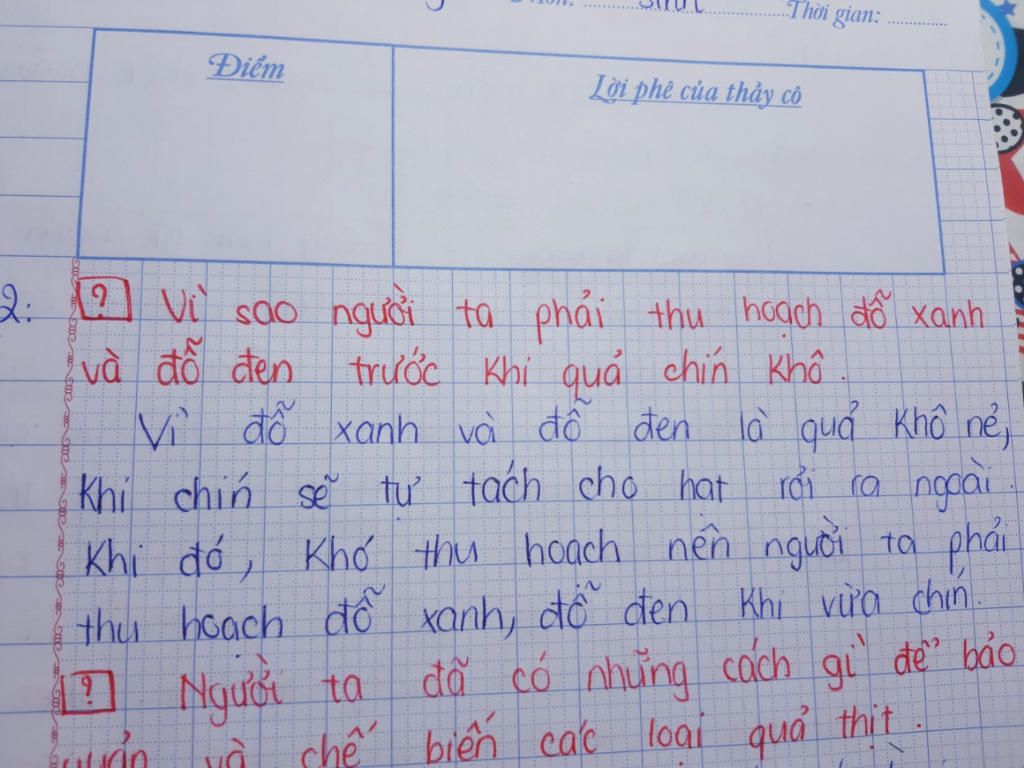 Thời gian:
Điểm
Lời phê của thầy cô
2:
? Vì sao người ta phải thu hoạch đỗ xanh
và đỗ đen trước khi quả chín khô.
Vì đỗ xanh và đỗ đen là quả khô nẻ,
khi chín sẽ tự tách cho hạt rơi ra ngoài.
Khi đó, khó thu hoạch nên người ta phải
thu hoạch đỗ xanh, đỗ đen khi vừa chín.
? Người ta đã có những cách gì để bảo
quản và chế biến các loại quả thịt.